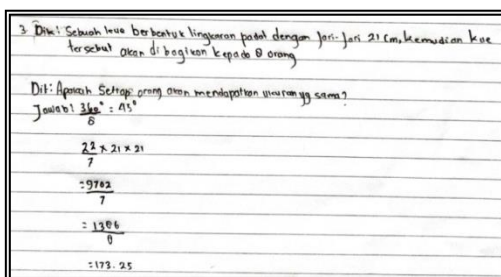 3. Dik: Sebuah kue berbentuk lingkaran padat dengan Jari-Jari 21 cm, kemudian kue
tersebut akan di bagikan kepada 8 orang
Dit: Apakah Setiap orang akan mendapatkan ukuran yg sama?
Jawab: 360° = 45°
8
22 x 21 x 21
7
= 9702
7
= 1386
8
= 173.25